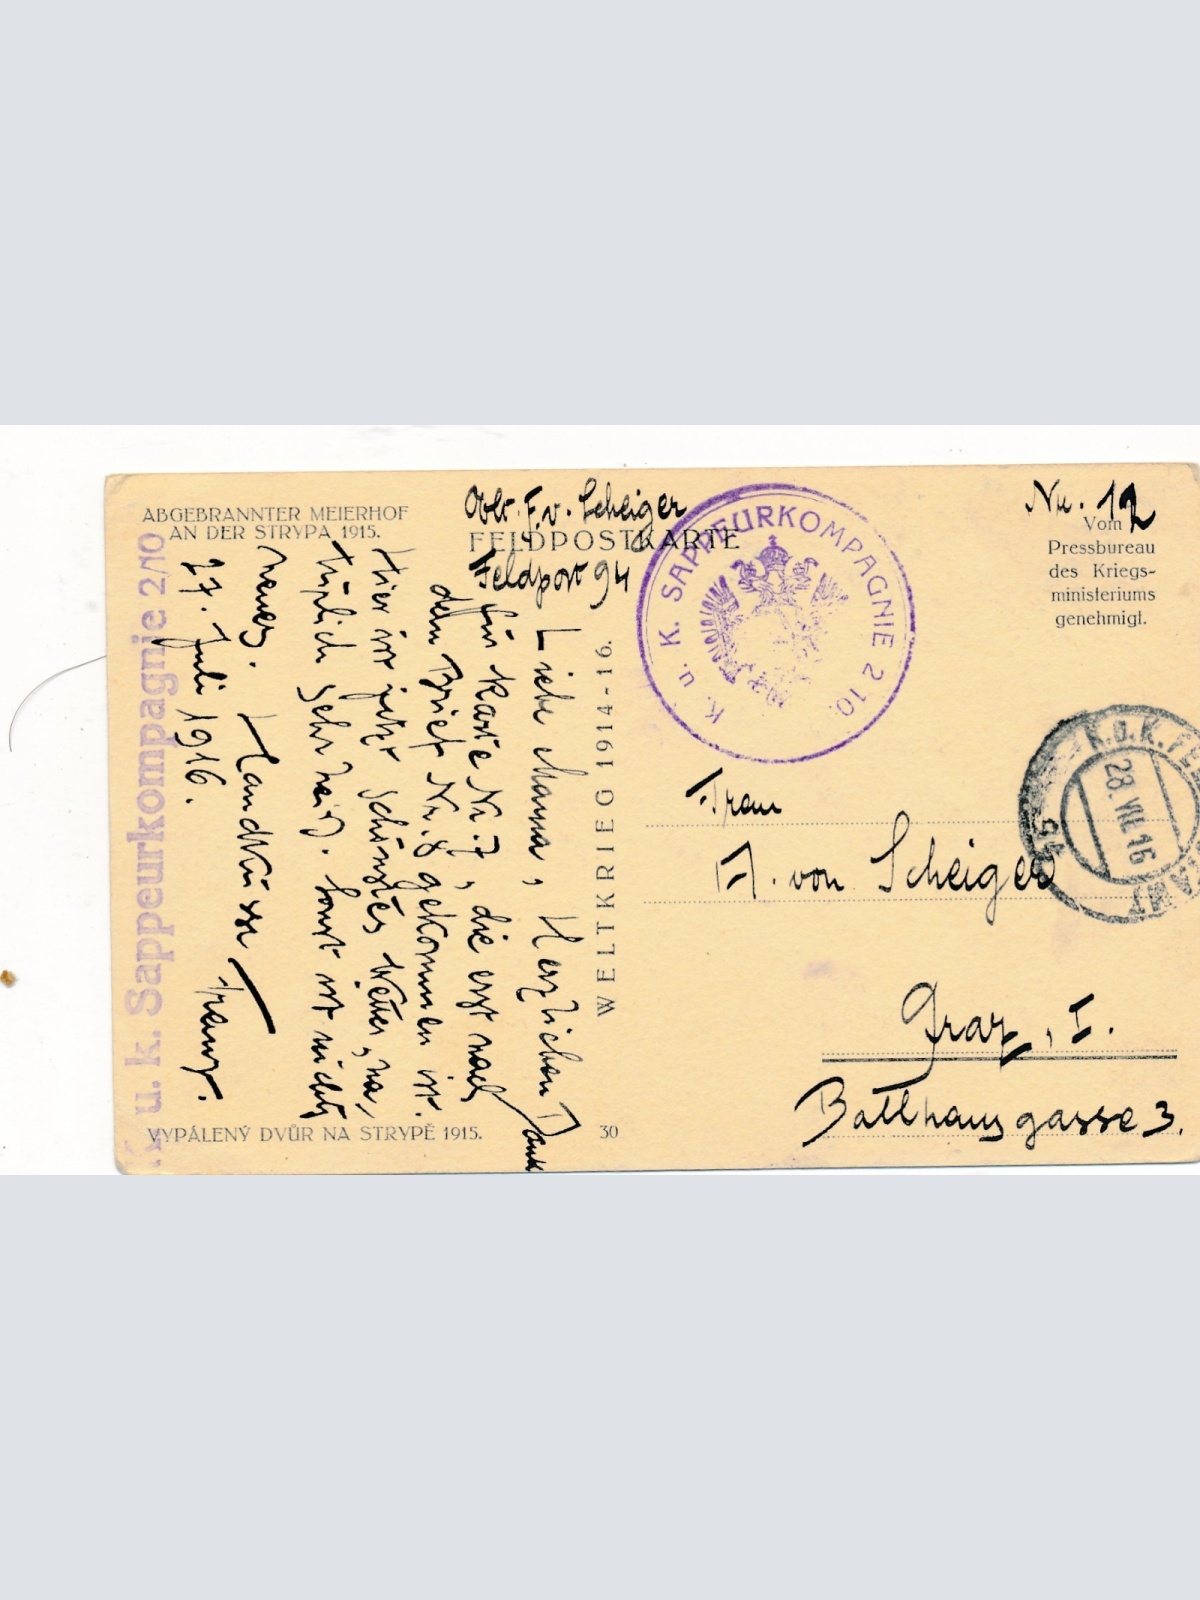 ABGEBRANNTER MEIERHOF
AN DER STRYPA 1915.
Oblt. F. v. Scheiger
FELDPOSTKARTE
Feldpost 94
Nu. 12
Vom
Pressbureau
des Kriegs-
ministeriums
genehmigt.
K. u. K. SAPPEURKOMPAGNIE 2 10.
K. u. K. FE
28. VII. 16
94
K. u. k. Sappeurkompagnie 2/10
Liebe Mama, Herzlichen Dank
für Karte Nr. 7, die erst nach
dem Brief Nr. 8 gekommen ist.
Hier ist jetzt schönstes Wetter, na,
türlich sehr heiß. Sonst ist nichts
neues. Handküsse Franz.
27. Juli 1916.
WELTKRIEG 1914-16.
Frau
A. von Scheiger
Graz, I.
Ballhausgasse 3.
VYPÁLENÝ DVŮR NA STRYPĚ 1915.
30